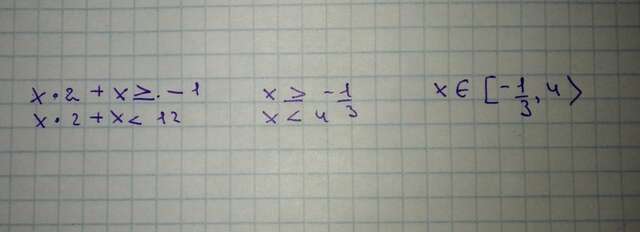 x · 2 + x ≥ . - 1
x · 2 + x < 12
x ≥ - 1/3
x < 4
x ∈ [ - 1/3 , 4 )